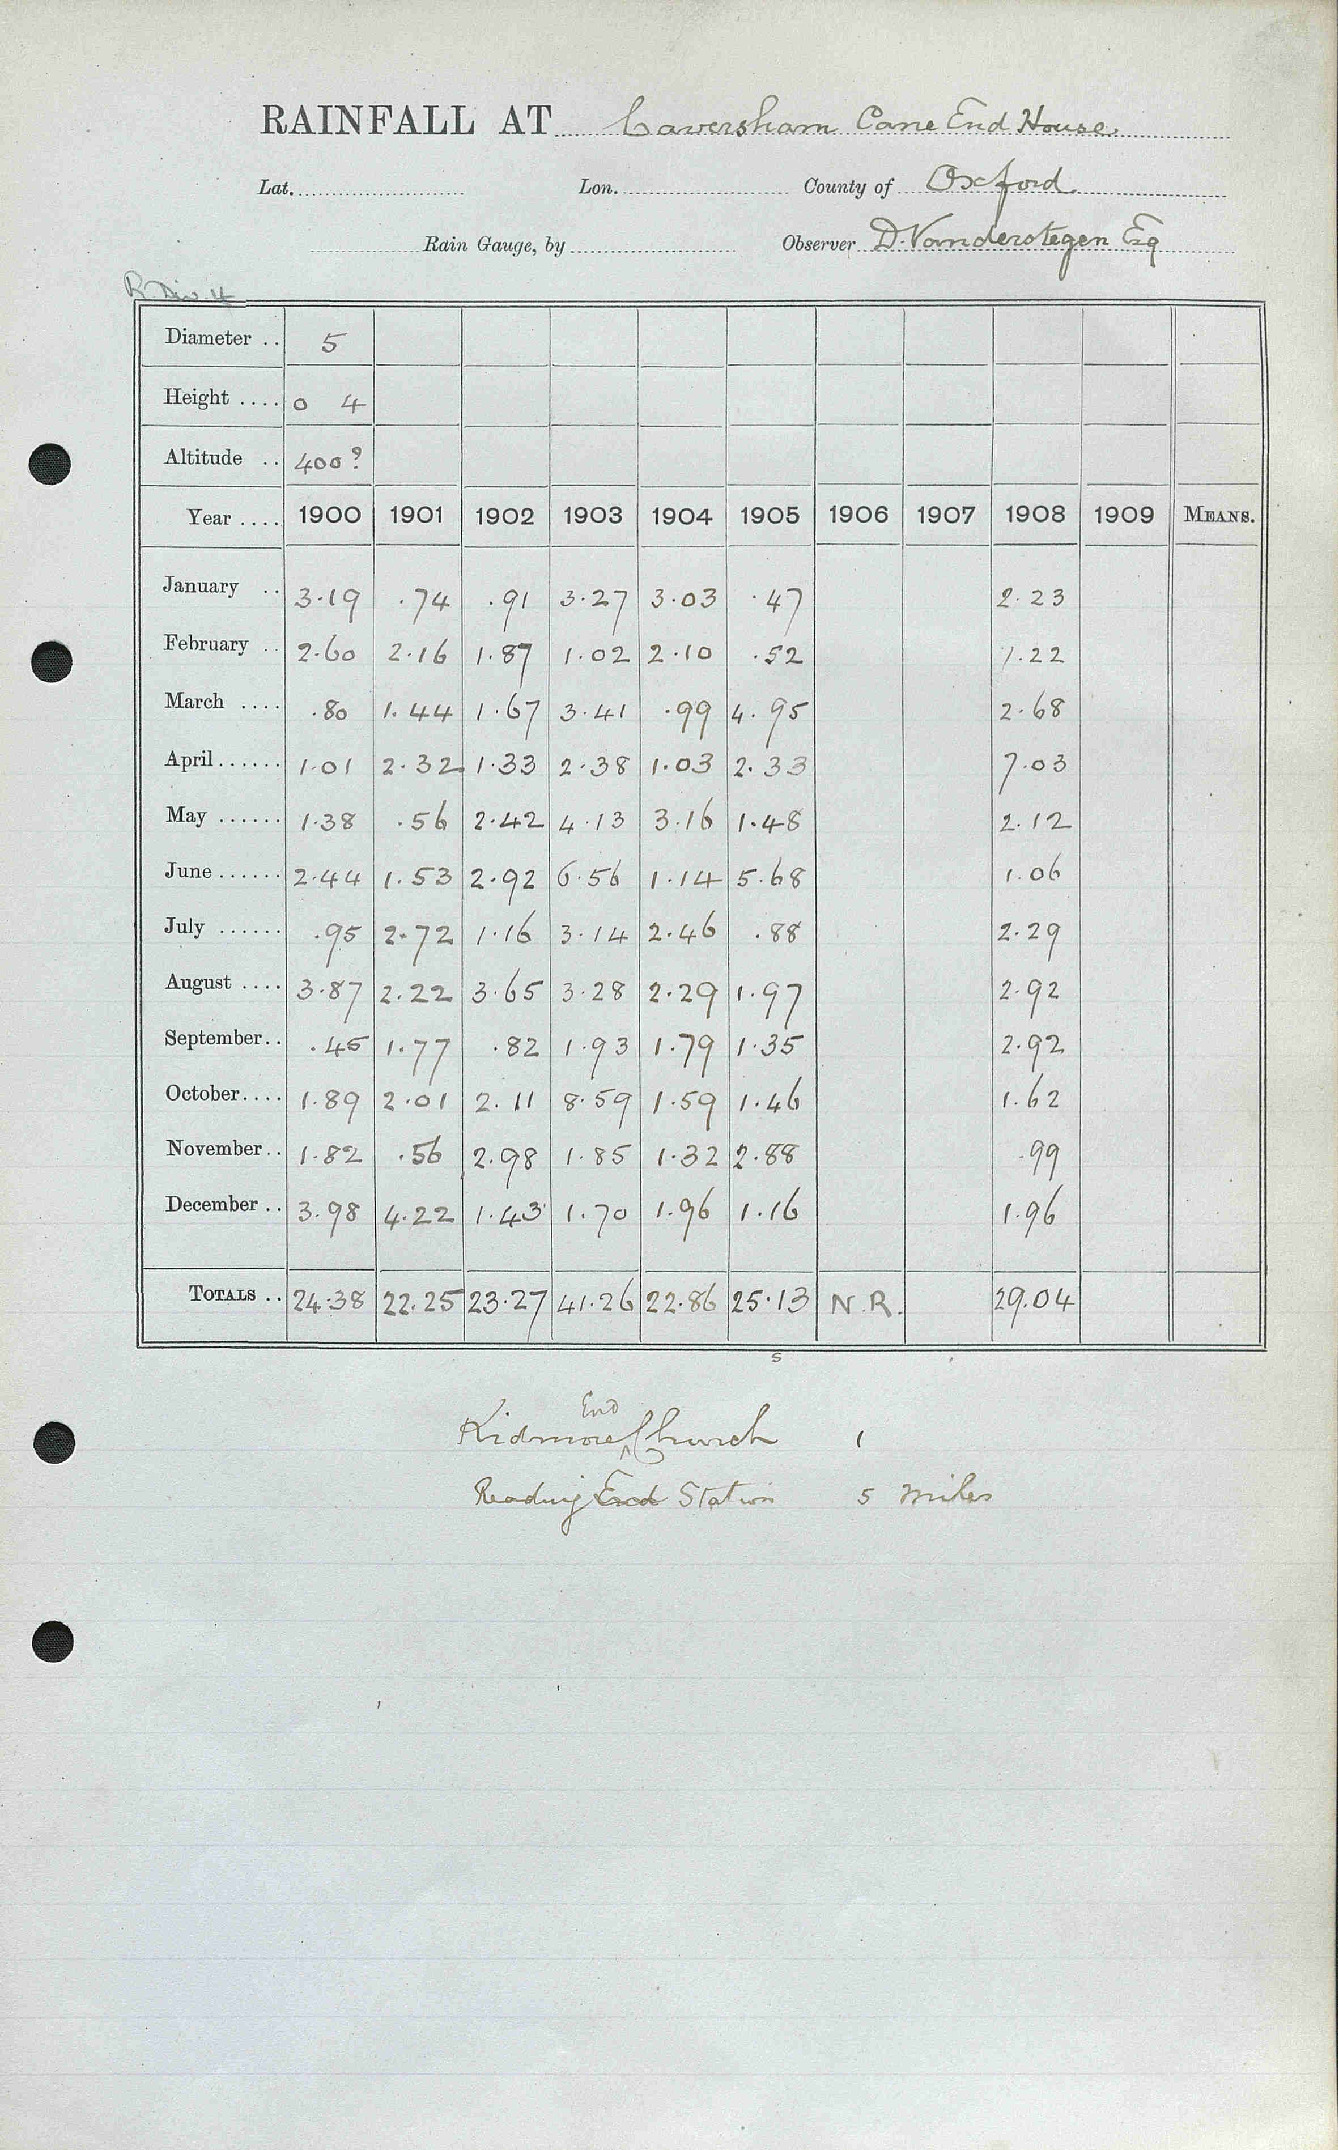 RAINFALL AT Caversham Cane End House
Lat. Lon. County of Oxford
Rain Gauge, by Observer D. Vanderstegen Esq
R Div. 4
Diameter .. 5
Height .... 0 4
Altitude .. 400?
Year .... 1900 1901 1902 1903 1904 1905 1906 1907 1908 1909 MEANS.
January .. 3.19 .74 .91 3.27 3.03 .47 2.23
February .. 2.60 2.16 1.87 1.02 2.10 .52 1.22
March .... .80 1.44 1.67 3.41 .99 4.95 2.68
April...... 1.01 2.32 1.33 2.38 1.03 2.33 7.03
May ...... 1.38 .56 2.42 4.13 3.16 1.48 2.12
June...... 2.44 1.53 2.92 6.56 1.14 5.68 1.06
July ...... .95 2.72 1.16 3.14 2.46 .88 2.29
August .... 3.87 2.22 3.65 3.28 2.29 1.97 2.92
September.. .45 1.77 .82 1.93 1.79 1.35 2.92
October.... 1.89 2.01 2.11 8.59 1.59 1.46 1.62
November.. 1.82 .56 2.98 1.85 1.32 2.88 .99
December .. 3.98 4.22 1.43 1.70 1.96 1.16 1.96
TOTALS .. 24.38 22.25 23.27 41.26 22.86 25.13 N.R. 29.04
s
Kidmore End Church 1
Reading End Station 5 miles